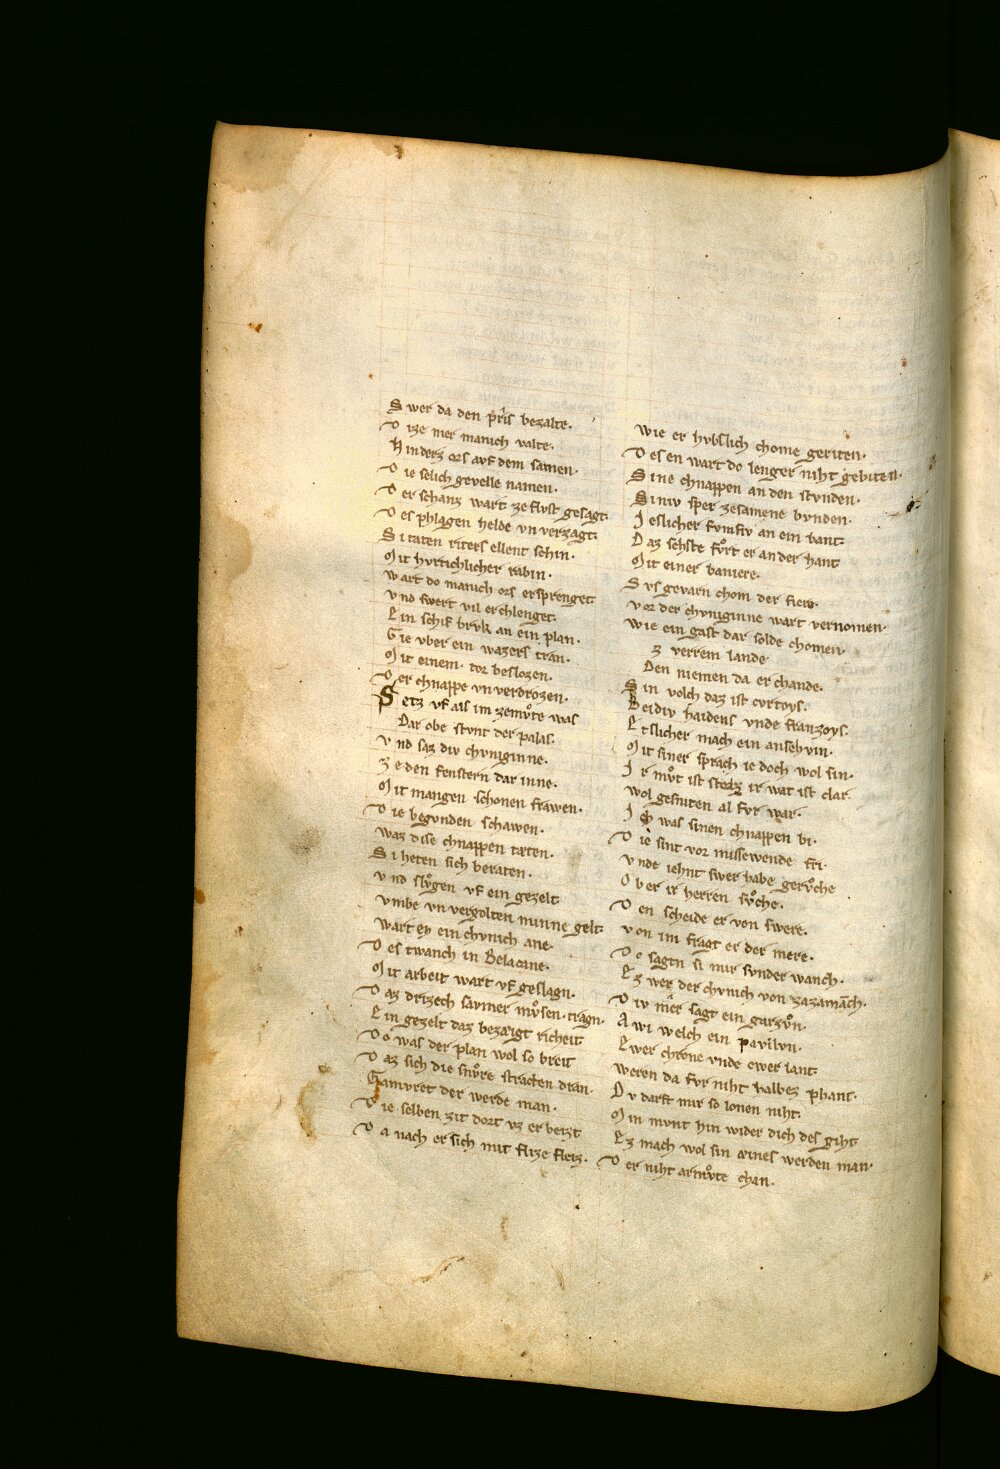 S wer da den pris bezalte.
D ize mer manich valte.
H inderz ors avf dem samen.
D ie selich gevelle namen.
D er schanz wart ze flvst gesagt.
D es phlagen helde vn verzagt.
S i taten riters ellent schin.
M it hvrtichlicher rabin.
W art do manich ors ersprenget.
V nd swert vil erchlenget.
E in schif brvk an ein plan.
G ie vber ein wazers tran.
M it einem. tor beslozen.
D er chnappe vn verdrozen.
S etz vf als im zemvͦte was
Dar obe stvnt der palas.
V nd saz div chvniginne.
Z e den fenstern dar inne.
M it mangen schonen frawen.
D ie begvnden schawen.
Waz dise chnappen tæten.
S i heten sich beraten.
V nd slvͦgen vf ein gezelt
Vmbe vn vergolten minne gelt.
Wart ez ein chvnich ane.
D es twanch in Belacane.
M it arbeit wart vf geslagn.
D az drizech savmer mvͦsen. tragn.
E in gezelt daz bezæigt richeit
D o was der plan wol so breit
D az sich die snvͦre stracten dran.
Gamvret der werde man.
D ie selben zit dort vz erbeizt
D a nach er sich mit flize fleiz.
Wie er hvbslich chome geriten.
D es en wart do lenger niht gebiten.
S ine chnappen an den stvnden.
S iniv sper zesamene bvnden.
I eslicher fvmfiv an ein bant.
D az sehste fvͦrt er an der hant
M it einer baniere.
S vs gevarn chom der fiere.
Vor der chvniginne wart vernomen.
Wie ein gast dar solde chomen.
z verrem lande.
Den niemen da er chande.
S in volch daz ist cvrtoys.
B eidiv haidens vnde franzoys.
E tslicher mach ein anschvin.
M it siner sprach ie doch wol sin.
I r mvͦt ist stolz ir wat ist clar.
Wol gesniten al fvr war.
I ch was sinen chnappen bi.
D ie sint vor missewende fri
V nde iehnt swer habe gervͦche
O b er ir herren svͦche.
D en scheide er von swere.
V on im fragt er der mere.
D o sagtn si mir svnder wanch.
E z wer der chvnich von zazamach.
D iv mer sagt ein garzvͦn.
A wi welch ein pavilvn.
E wer chrone vnde ewer lant
Weren da fvr niht halbez phant.
D v darft mir so lonen niht.
M in mvnt hin wider dich des giht
E z mach wol sin æines werden man.
D er niht armvͦte chan.